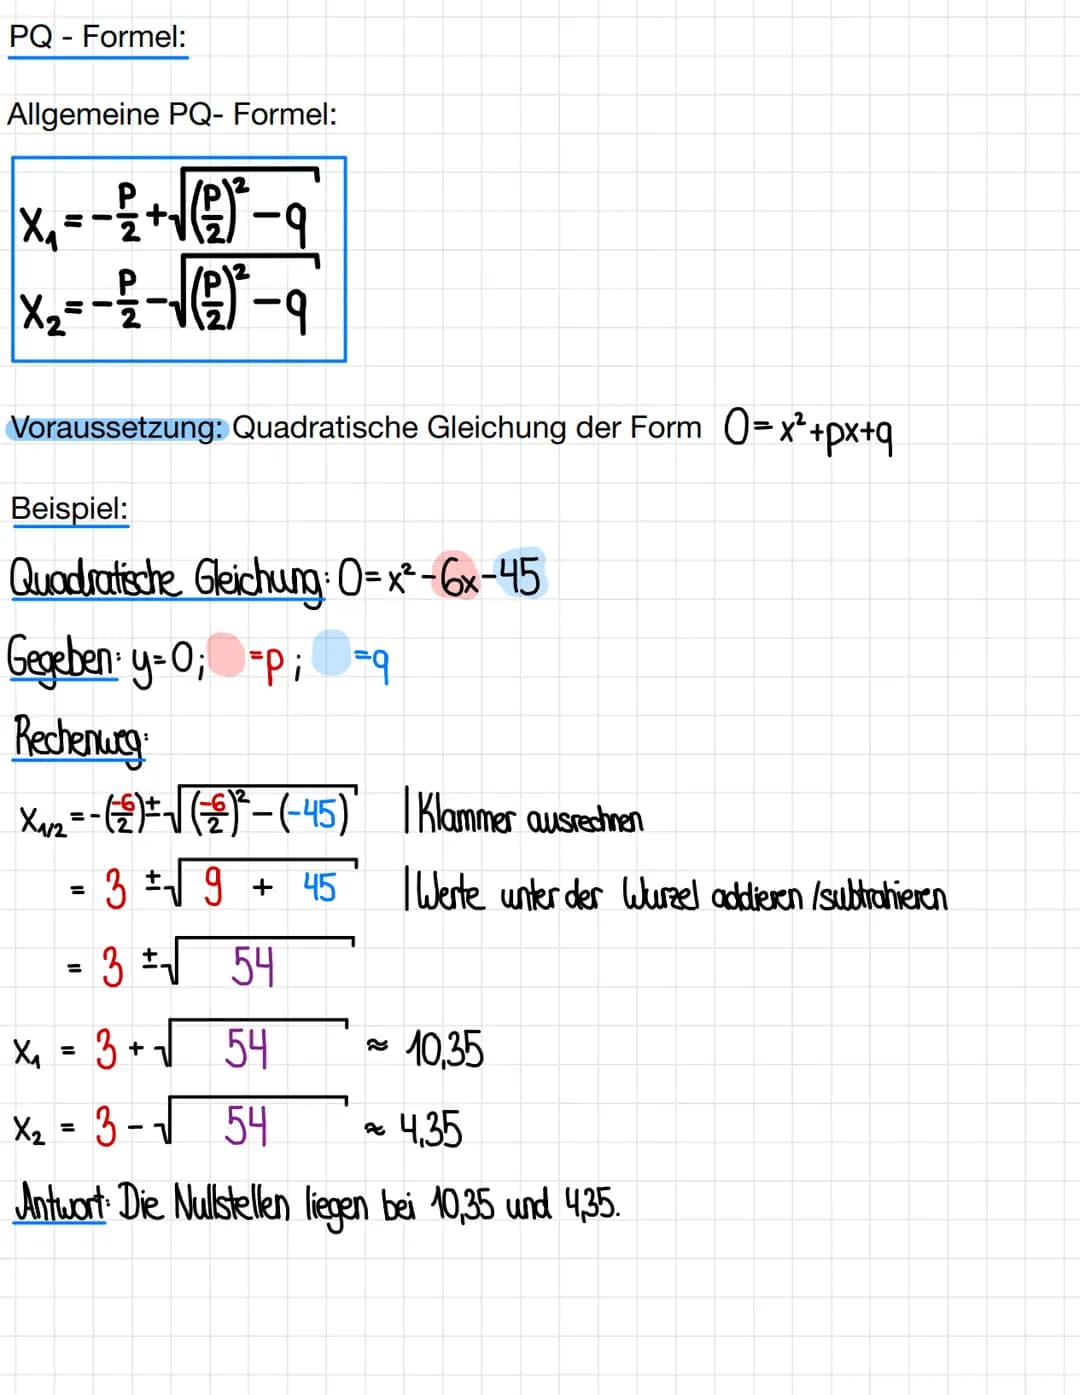 PQ - Formel:
Allgemeine PQ- Formel:
x₁ = -p/2 + √((p/2)² - q)
x₂ = -p/2 - √((p/2)² - q)
Voraussetzung: Quadratische Gleichung der Form 0=x²+px+q
Beispiel:
Quadratische Gleichung: 0=x²-6x-45
Gegeben: y=0; =p ; =q
Rechenweg:
x₁/₂ = -(-6/2) ± √((-6/2)² - (-45)) | Klammer ausrechnen
= 3 ± √ 9 + 45 | Werte unter der Wurzel addieren /subtrahieren
= 3 ± √ 54
x₁ = 3 + √ 54 ≈ 10,35
x₂ = 3 - √ 54 ≈ 4,35
Antwort: Die Nullstellen liegen bei 10,35 und 4,35.